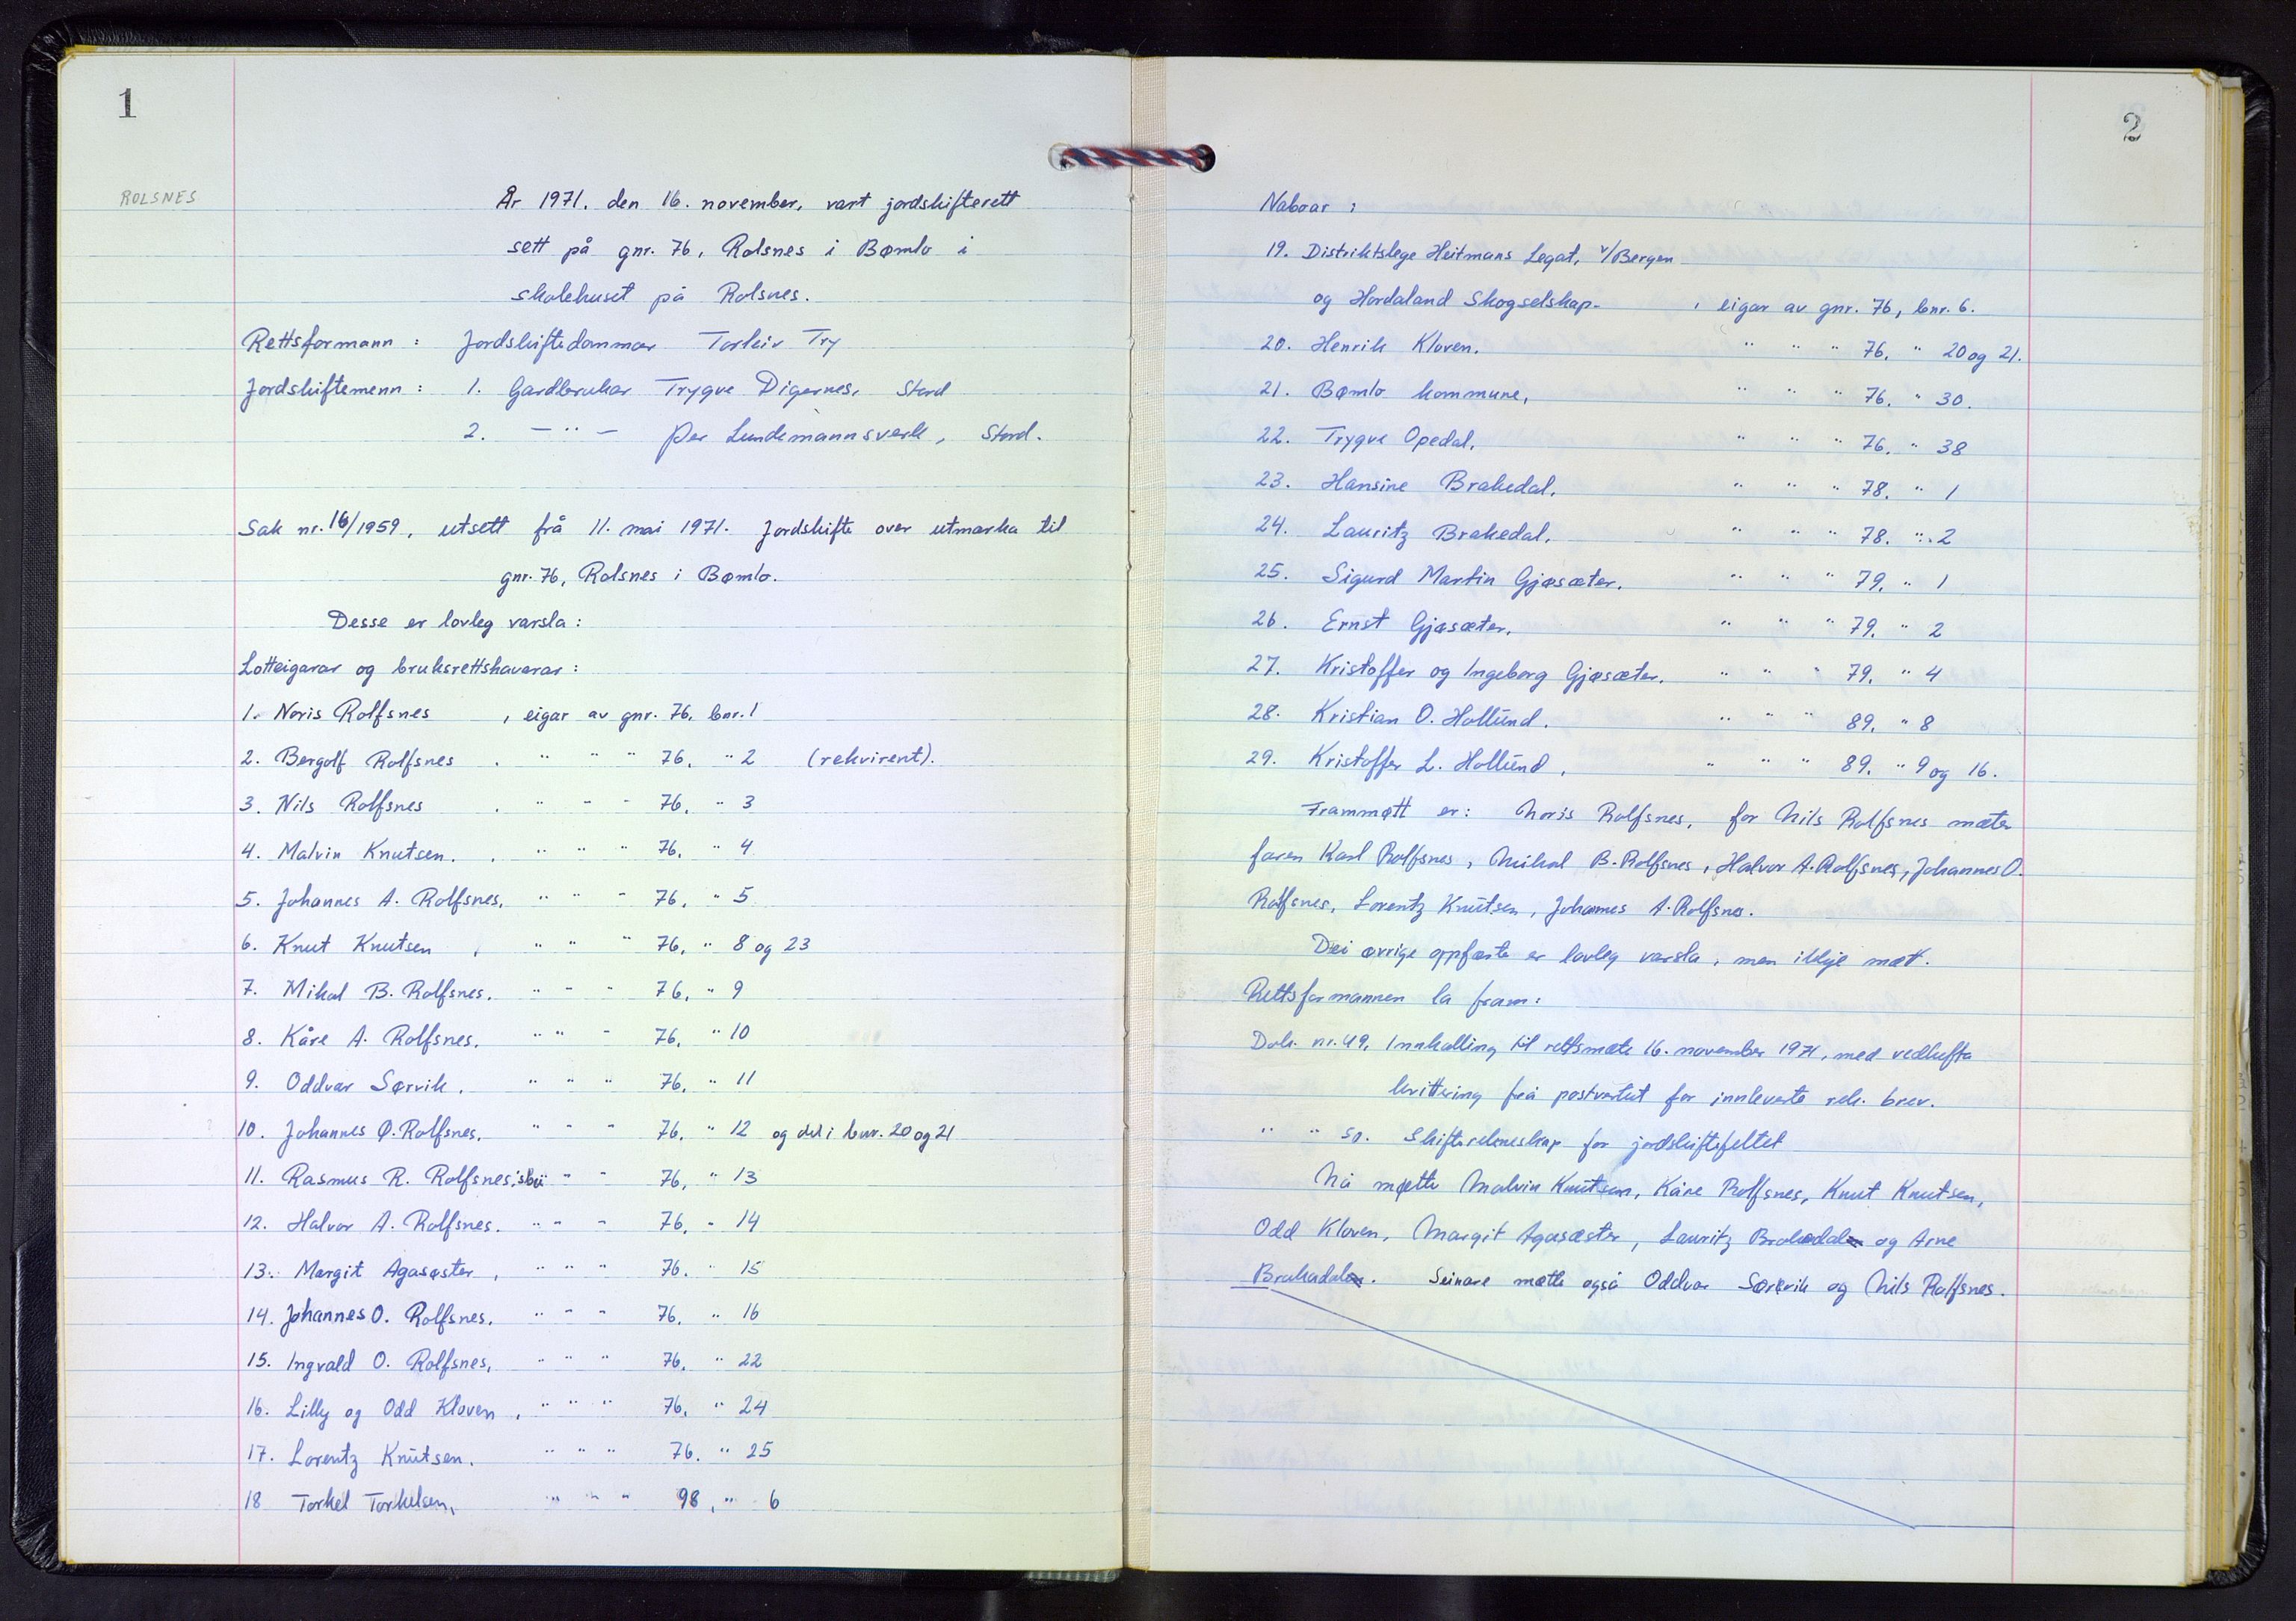 1
ROLSNES
År 1971. den 16. november, vart jordskifterett
sett på gnr. 76, Rolsnes i Bømlo i
skolehuset på Rolsnes.
Rettsformann : Jordskiftedommar Torleiv Try
Jordskiftemenn : 1. Gardbrukar Trygve Digernes, Stord
2. — " — Per Lundemannsverk, Stord.
Sak nr. 16/1959, utsett frå 11. mai 1971. Jordskifte over utmarka til
gnr. 76, Rolsnes i Bømlo.
Desse er lovleg varsla :
Lotteigarar og bruksrettshavarar :
1. Noris Rolfsnes , eigar av gnr. 76, bnr. 1
2. Bergolf Rolfsnes , " " " 76, " 2 (rekvirent).
3. Nils Rolfsnes , " " " 76, " 3
4. Malvin Knutsen. , " " " 76, " 4
5. Johannes A. Rolfsnes, " " " 76, " 5
6. Knut Knutsen , " " " 76, " 8 og 23
7. Mikal B. Rolfsnes, " " " 76, " 9
8. Kåre A. Rolfsnes, " " " 76, " 10
9. Oddvar Sørvik, " " " 76, " 11
10. Johannes Ø. Rolfsnes, " " " 76, " 12 og del i bnr. 20 og 21
11. Rasmus R. Rolfsnes, sbu " " 76, " 13
12. Halvor A. Rolfsnes. " " " 76, " 14
13. Margit Agasøster , " " " 76. " 15
14. Johannes O. Rolfsnes, " " " 76, " 16
15. Ingvald O. Rolfsnes, " " " 76, " 22
16. Lilly og Odd Kloven , " " " 76, " 24
17. Lorentz Knutsen, " " " 76. " 25
18 Torkel Torkelsen, " " " 98, " 6
2
Naboar :
19. Distriktslege Heitmans Legat, v/Bergen
og Hordaland Skogselskap- , eigar av gnr. 76, bnr. 6.
20. Henrik Kloven. " " " 76, " 20 og 21.
21. Bømlo kommune, " " " 76, " 30.
22. Trygve Opedal, " " " 76, " 38
23. Hansine Brakedal, " " " 78, " 1
24. Lauritz Brakedal, " " " 78. " 2
25. Sigurd Martin Gjøsæter, " " " 79, " 1
26. Ernst Gjøsæter, " " " 79, " 2
27. Kristoffer og Ingeborg Gjøsæter, " " " 79, " 4
28. Kristian O. Hollund. " " " 89, " 8
29. Kristoffer L. Hollund, " " " 89, " 9 og 16.
Frammøtt er: Noris Rolfsnes, for Nils Rolfsnes møter
faren Karl Rolfsnes, Mikal B. Rolfsnes, Halvor A. Rolfsnes, Johannes O.
Rolfsnes, Lorentz Knutsen, Johannes A. Rolfsnes.
Dei øvrige oppførte er lovleg varsla, men ikkje møtt.
Rettsformannen la fram:
Dok. nr. 49. Innkalling til rettsmøte 16. november 1971, med vedhefta
kvittering frå postverket for innleverte rek. brev.
" " 50. Skifterekneskap for jordskiftefeltet
Nå møtte Malvin Knutsen, Kåre Rolfsnes, Knut Knutsen,
Odd Kloven, Margit Agasøster, Lauritz Brakedal og Arne
Brakedal. Seinare møtte også Oddvar Sørvik og Nils Rolfsnes.